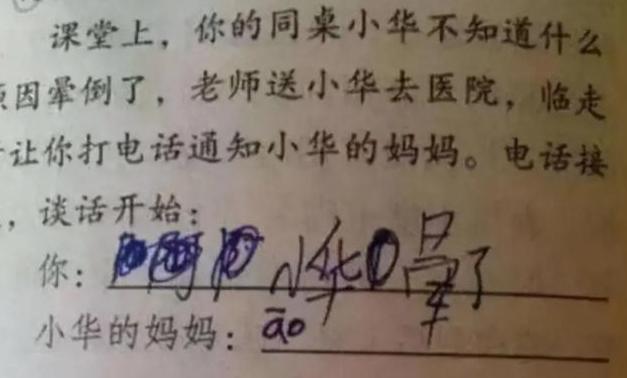 课堂上，你的同桌小华不知道什么
因晕倒了，老师送小华去医院，临走
让你打电话通知小华的妈妈。电话接
，谈话开始：
你：小华晕了
小华的妈妈：āo